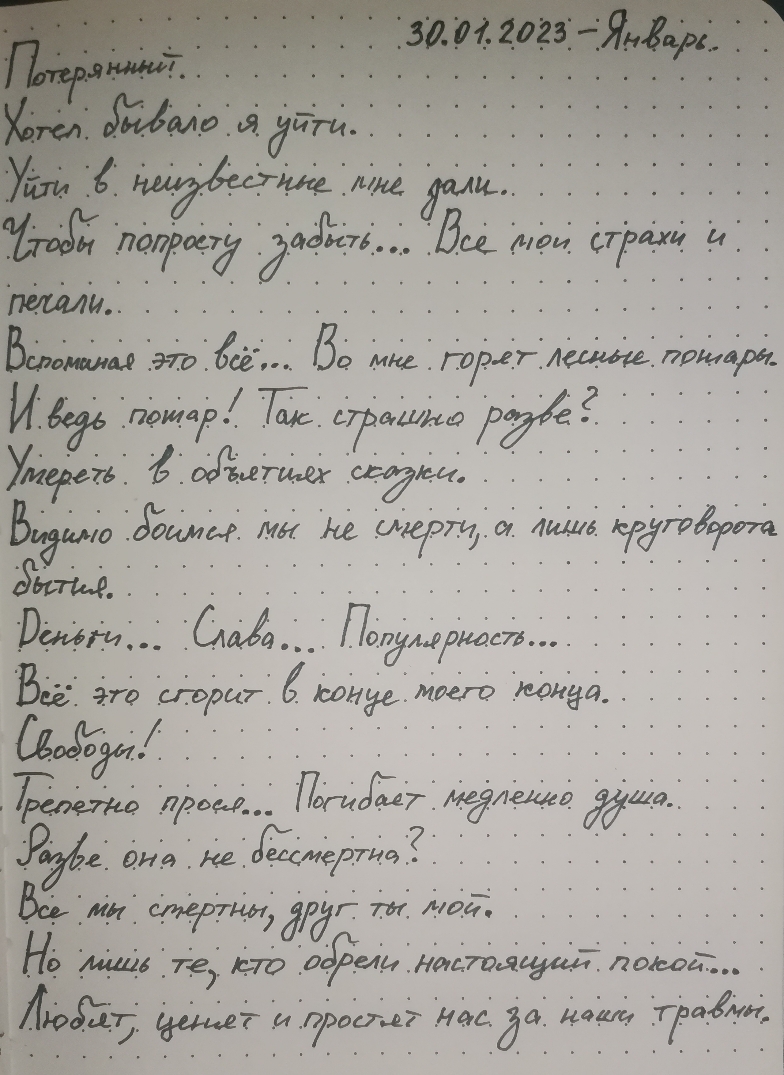 30.01.2023 – Январь.
Потерянный.
Хотел бывало я уйти.
Уйти в неизвестные мне дали.
Чтобы попросту забыть... Все мои страхи и
печали.
Вспоминая это всё... Во мне горят лесные пожары.
И ведь пожар! Так страшно разве?
Умереть в объятиях сказки.
Видимо боимся мы не смерти, а лишь круговорота
бытия.
Деньги... Слава... Популярность...
Всё это сгорит в конце моего конца.
Свободы!
Трепетно прося... Погибает медленно душа.
Разве она не бессмертна?
Все мы смертны, друг ты мой.
Но лишь те, кто обрели настоящий покой...
Любят, ценят и простят нас за наши травмы.